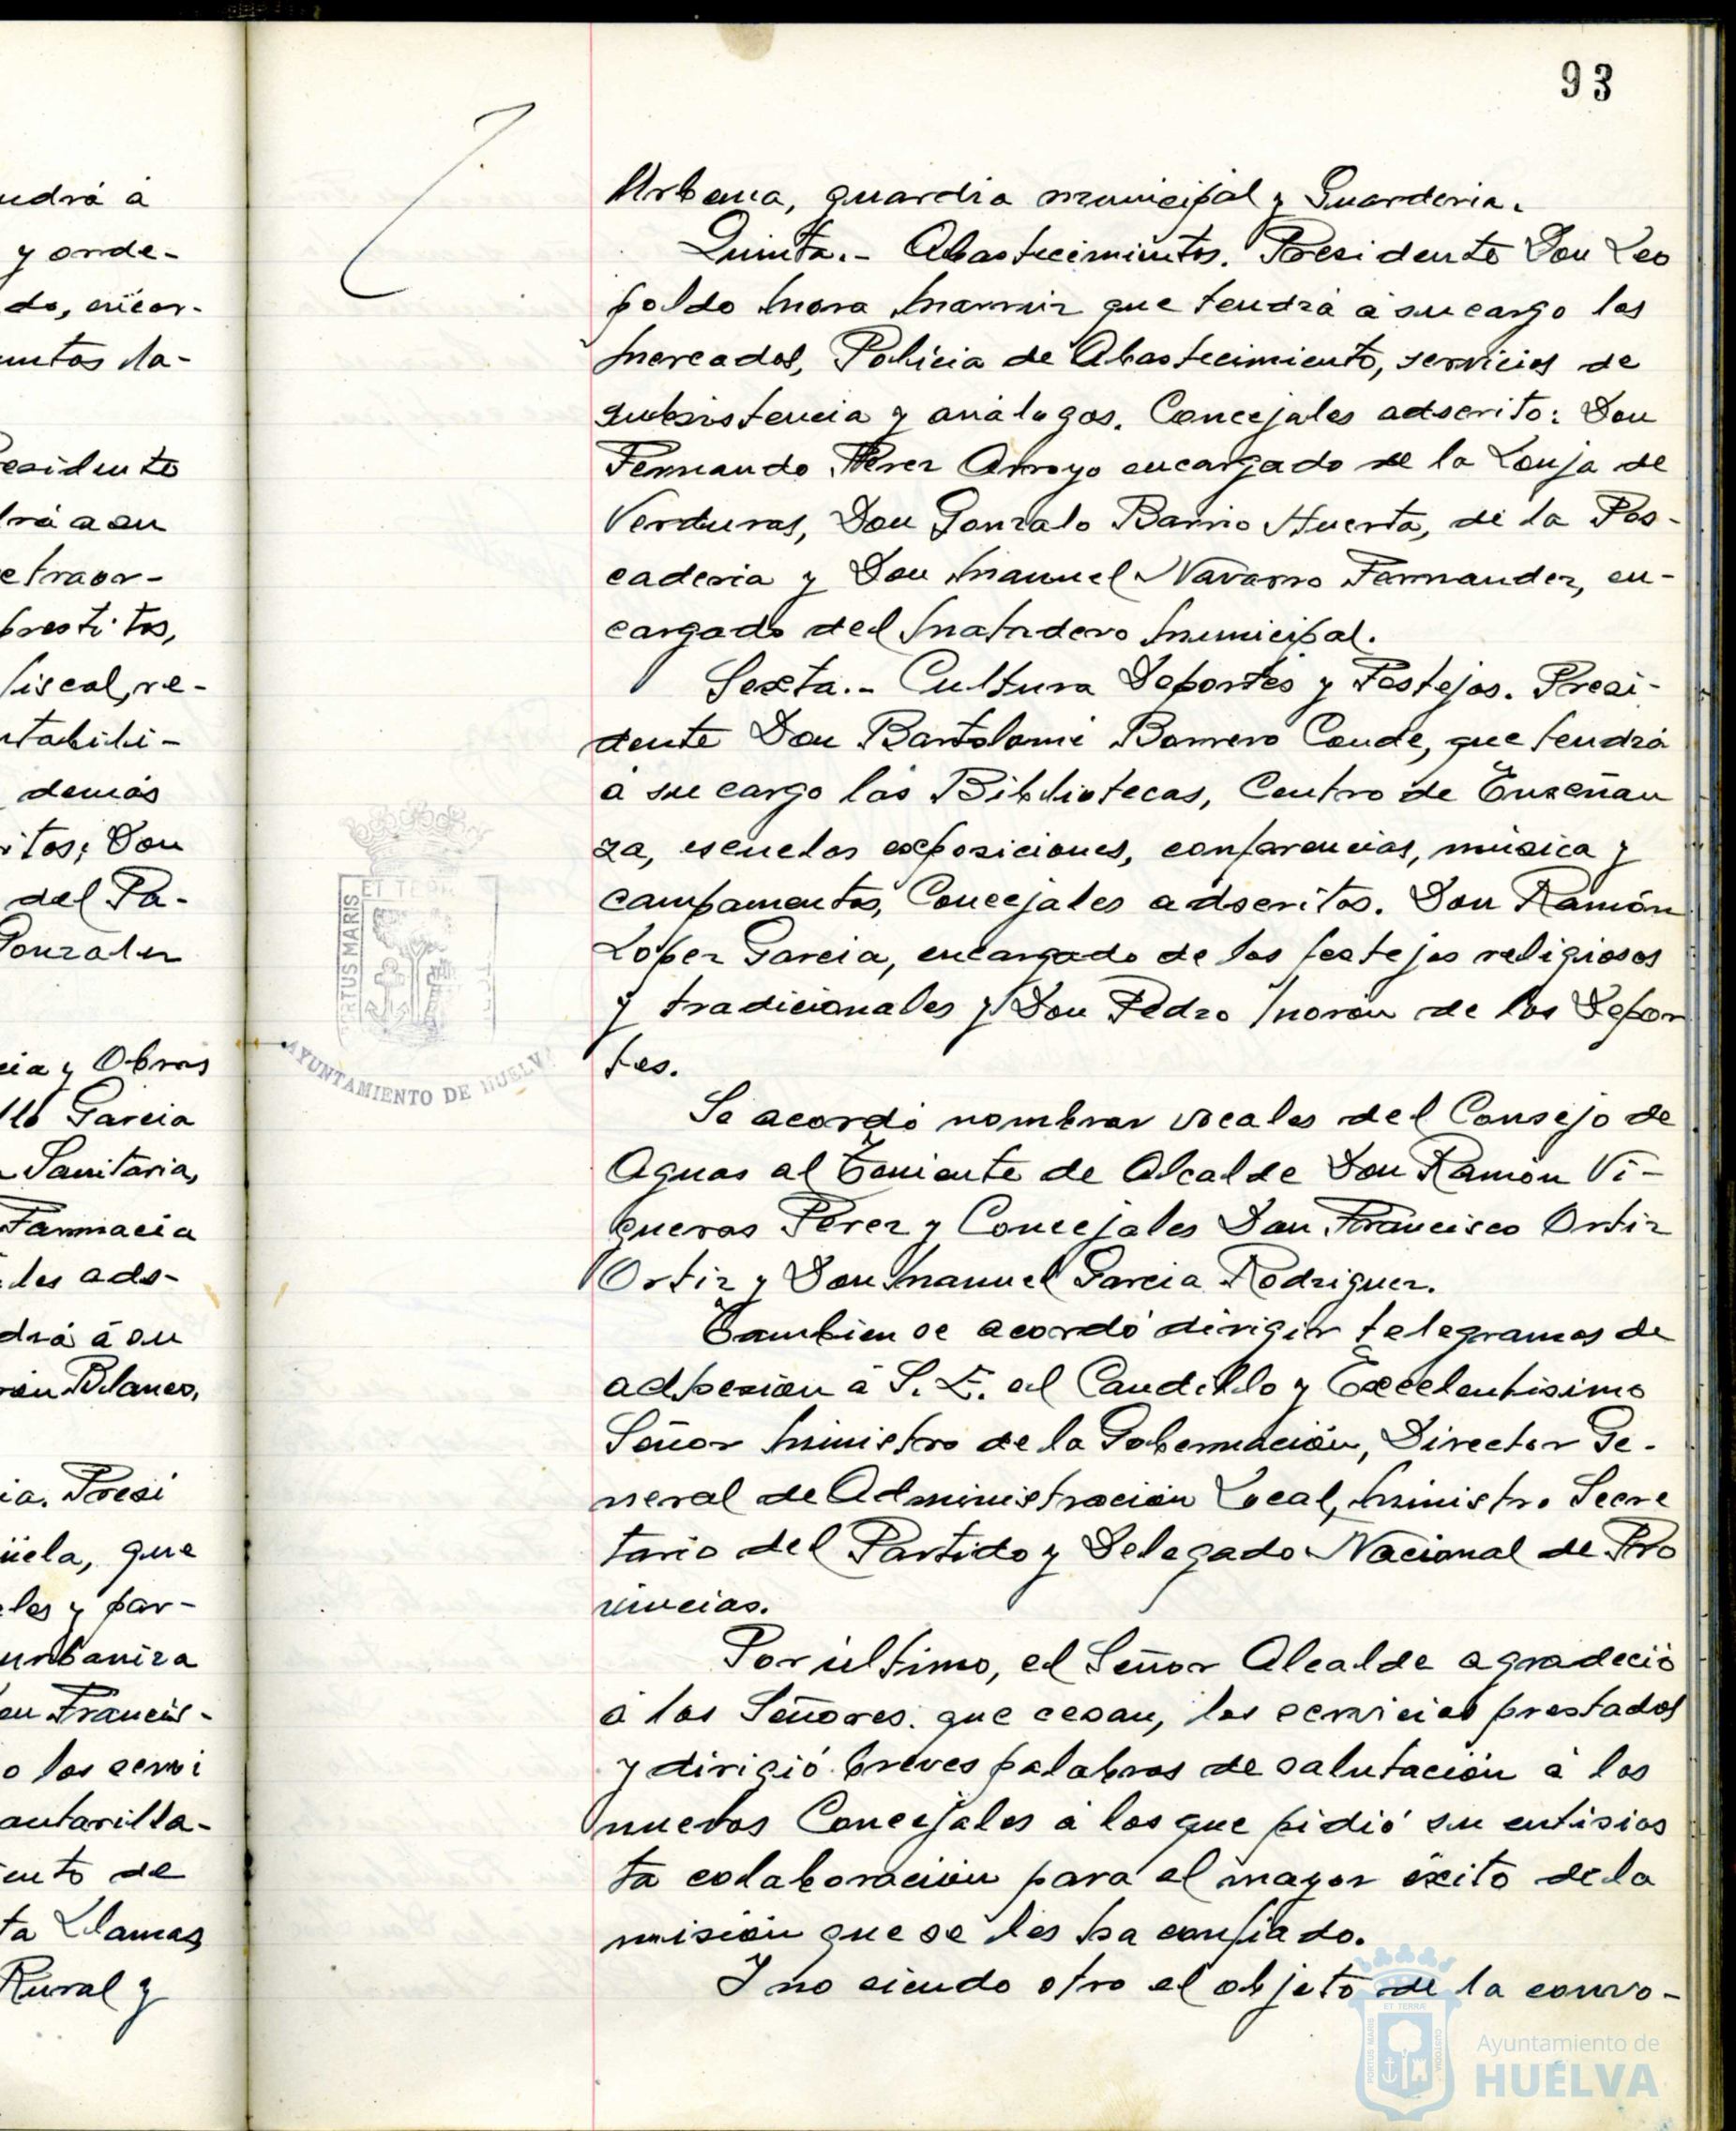 udrá á
y orde-
do, incor-
untos la-
residente
drá a su
etraor-
prestitos,
fiscal, re-
ntabili-
demás
itos; Don
del Pa-
Gonzalez
cia y Obras
llo Garcia
Sanitaria,
Farmacia
les ads-
drá á su
ron Blanco,
ia. Presi
üela, que
les y par-
urbaniza
on Francis-
o los servi
antarilla-
ento de
ta Llamas
Rural y
93
Urbana, guardia municipal y Guarderia.
Quinta.- Abastecimientos. Presidente Don Leo
poldo Mora Marmir que tendrá á su cargo los
Mercados, Policia de Abastecimiento, servicios de
subsistencia y análogos. Concejales adscrito: Don
Fernando Perez Arroyo encargado de la Lonja de
Verduras, Don Gonzalo Barrio Huerta, de la Pes-
caderia y Don Manuel Navarro Fernandez, en-
cargado del Matadero Municipal.
Sexta.- Cultura Deportes y Festejos. Presi-
dente Don Bartolomé Borrero Conde, que tendrá
á su cargo las Bibliotecas, Centro de Enseñan
za, escuelas exposiciones, conferencias, música y
campamentos, Concejales adscritos. Don Ramón
Lopez Garcia, encargado de los festejos religiosos
y tradicionales y Don Pedro Morón de los Depor
tes.
Se acordó nombrar vocales del Consejo de
Aguas al Teniente de Alcalde Don Ramón Vi-
gueras Perez y Concejales Don Francisco Ortiz
Ortiz y Don Manuel Garcia Rodriguez.
Tambien se acordó dirigir telegramas de
adhesión á S. E. el Caudillo y Excelentisimo
Señor Ministro de la Gobernación, Director Ge-
neral de Administración Local, Ministro Secre
tario del Partido y Delegado Nacional de Pro
vincias.
Por último, el Señor Alcalde agradeció
á los Señores. que cesan, los servicios prestados
y dirigió breves palabras de salutación á los
nuevos Concejales á los que pidió su entisias
ta colaboración para el mayor éxito de la
misión que se les ha confiado.
Y no siendo otro el objeto de la convo-
ET TERR
PORTUS MARIS
AYUNTAMIENTO DE HUELVA
ET TERRÆ
PORTUS MARIS
CUSTODIA
Ayuntamiento de
HUELVA